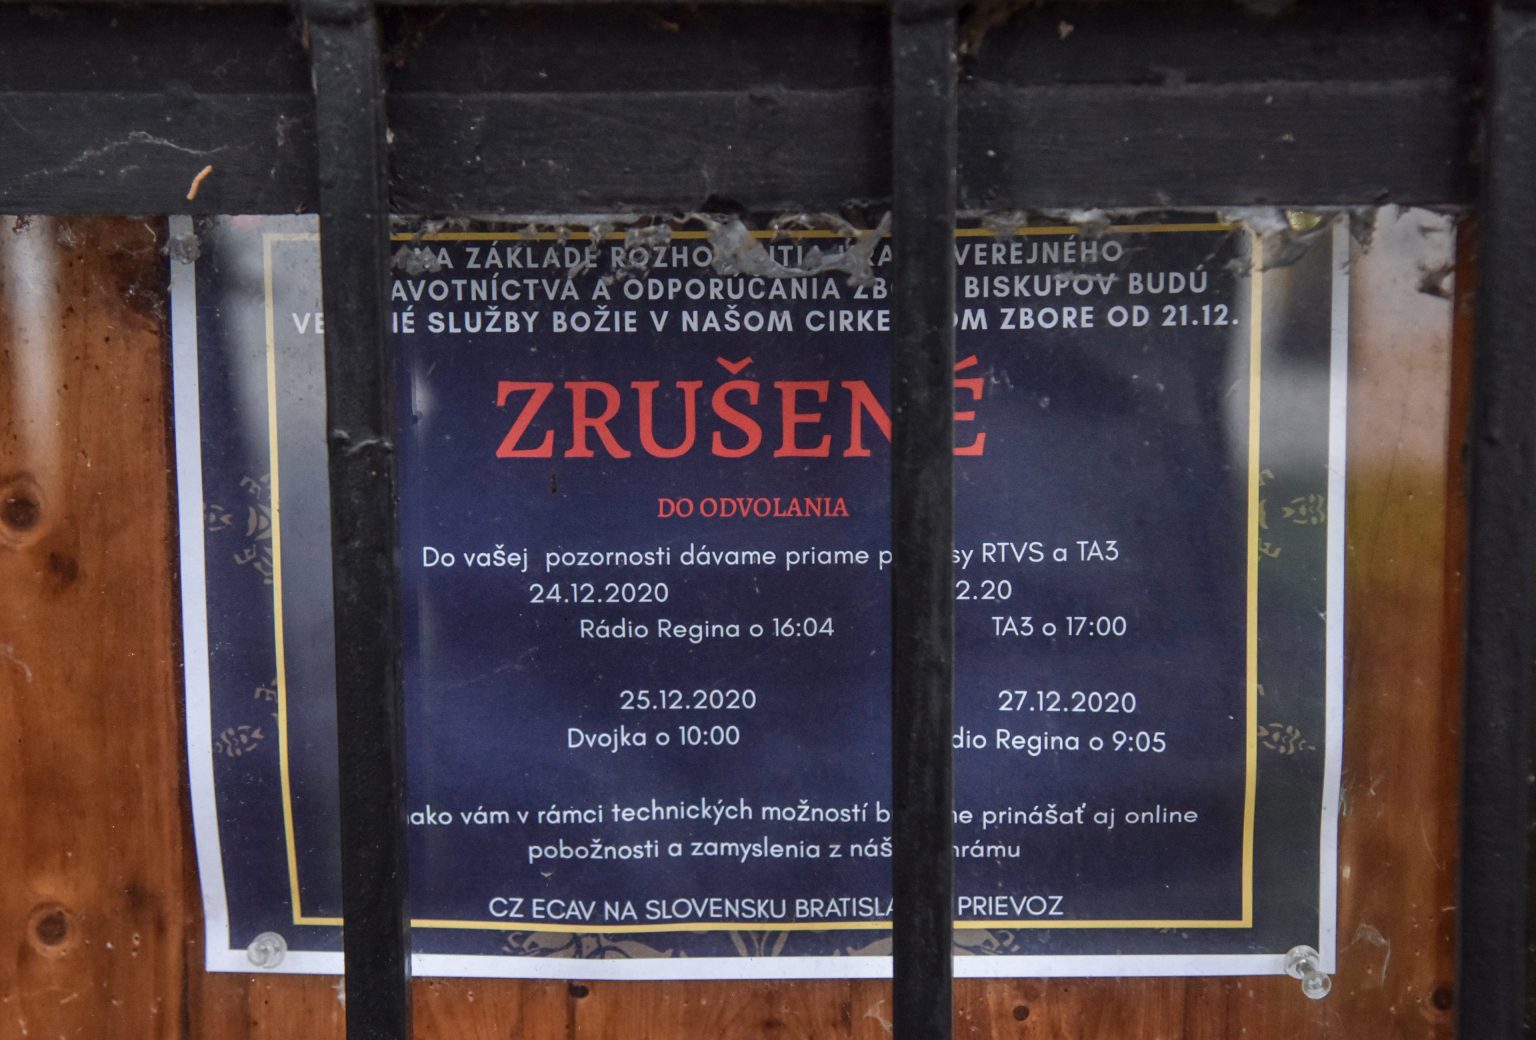 NA ZÁKLADE VEREJNÉHO
A ODPORÚČANIA BISKUPOV BUDÚ
SLUŽBY BOŽIE V NAŠOM ZBORE OD 21.12.
ZRUŠENÉ
DO ODVOLANIA
Do vašej pozornosti dávame priame RTVS a TA3
24.12.2020
Rádio Regina o 16:04 TA3 o 17:00
25.12.2020 27.12.2020
Dvojka o 10:00 Regina o 9:05
vám v rámci technických možností prinášať aj online
pobožnosti a zamyslenia z
CZ ECAV NA SLOVENSKU PRIEVOZ